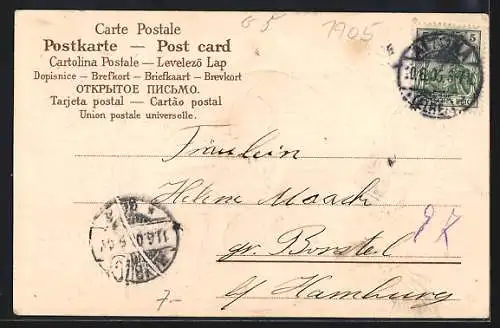 Carte Postale
Postkarte — Post card
Cartolina Postale — Levelező Lap
Dopisnice — Brefkort — Briefkaart — Brevkort
ОТКРЫТОЕ ПИСЬМО.
Tarjeta postal — Cartão postal
Union postale universelle.
1905
5
Fräulein
Helene Maack
gr. Borstel
b/ Hamburg
7.-